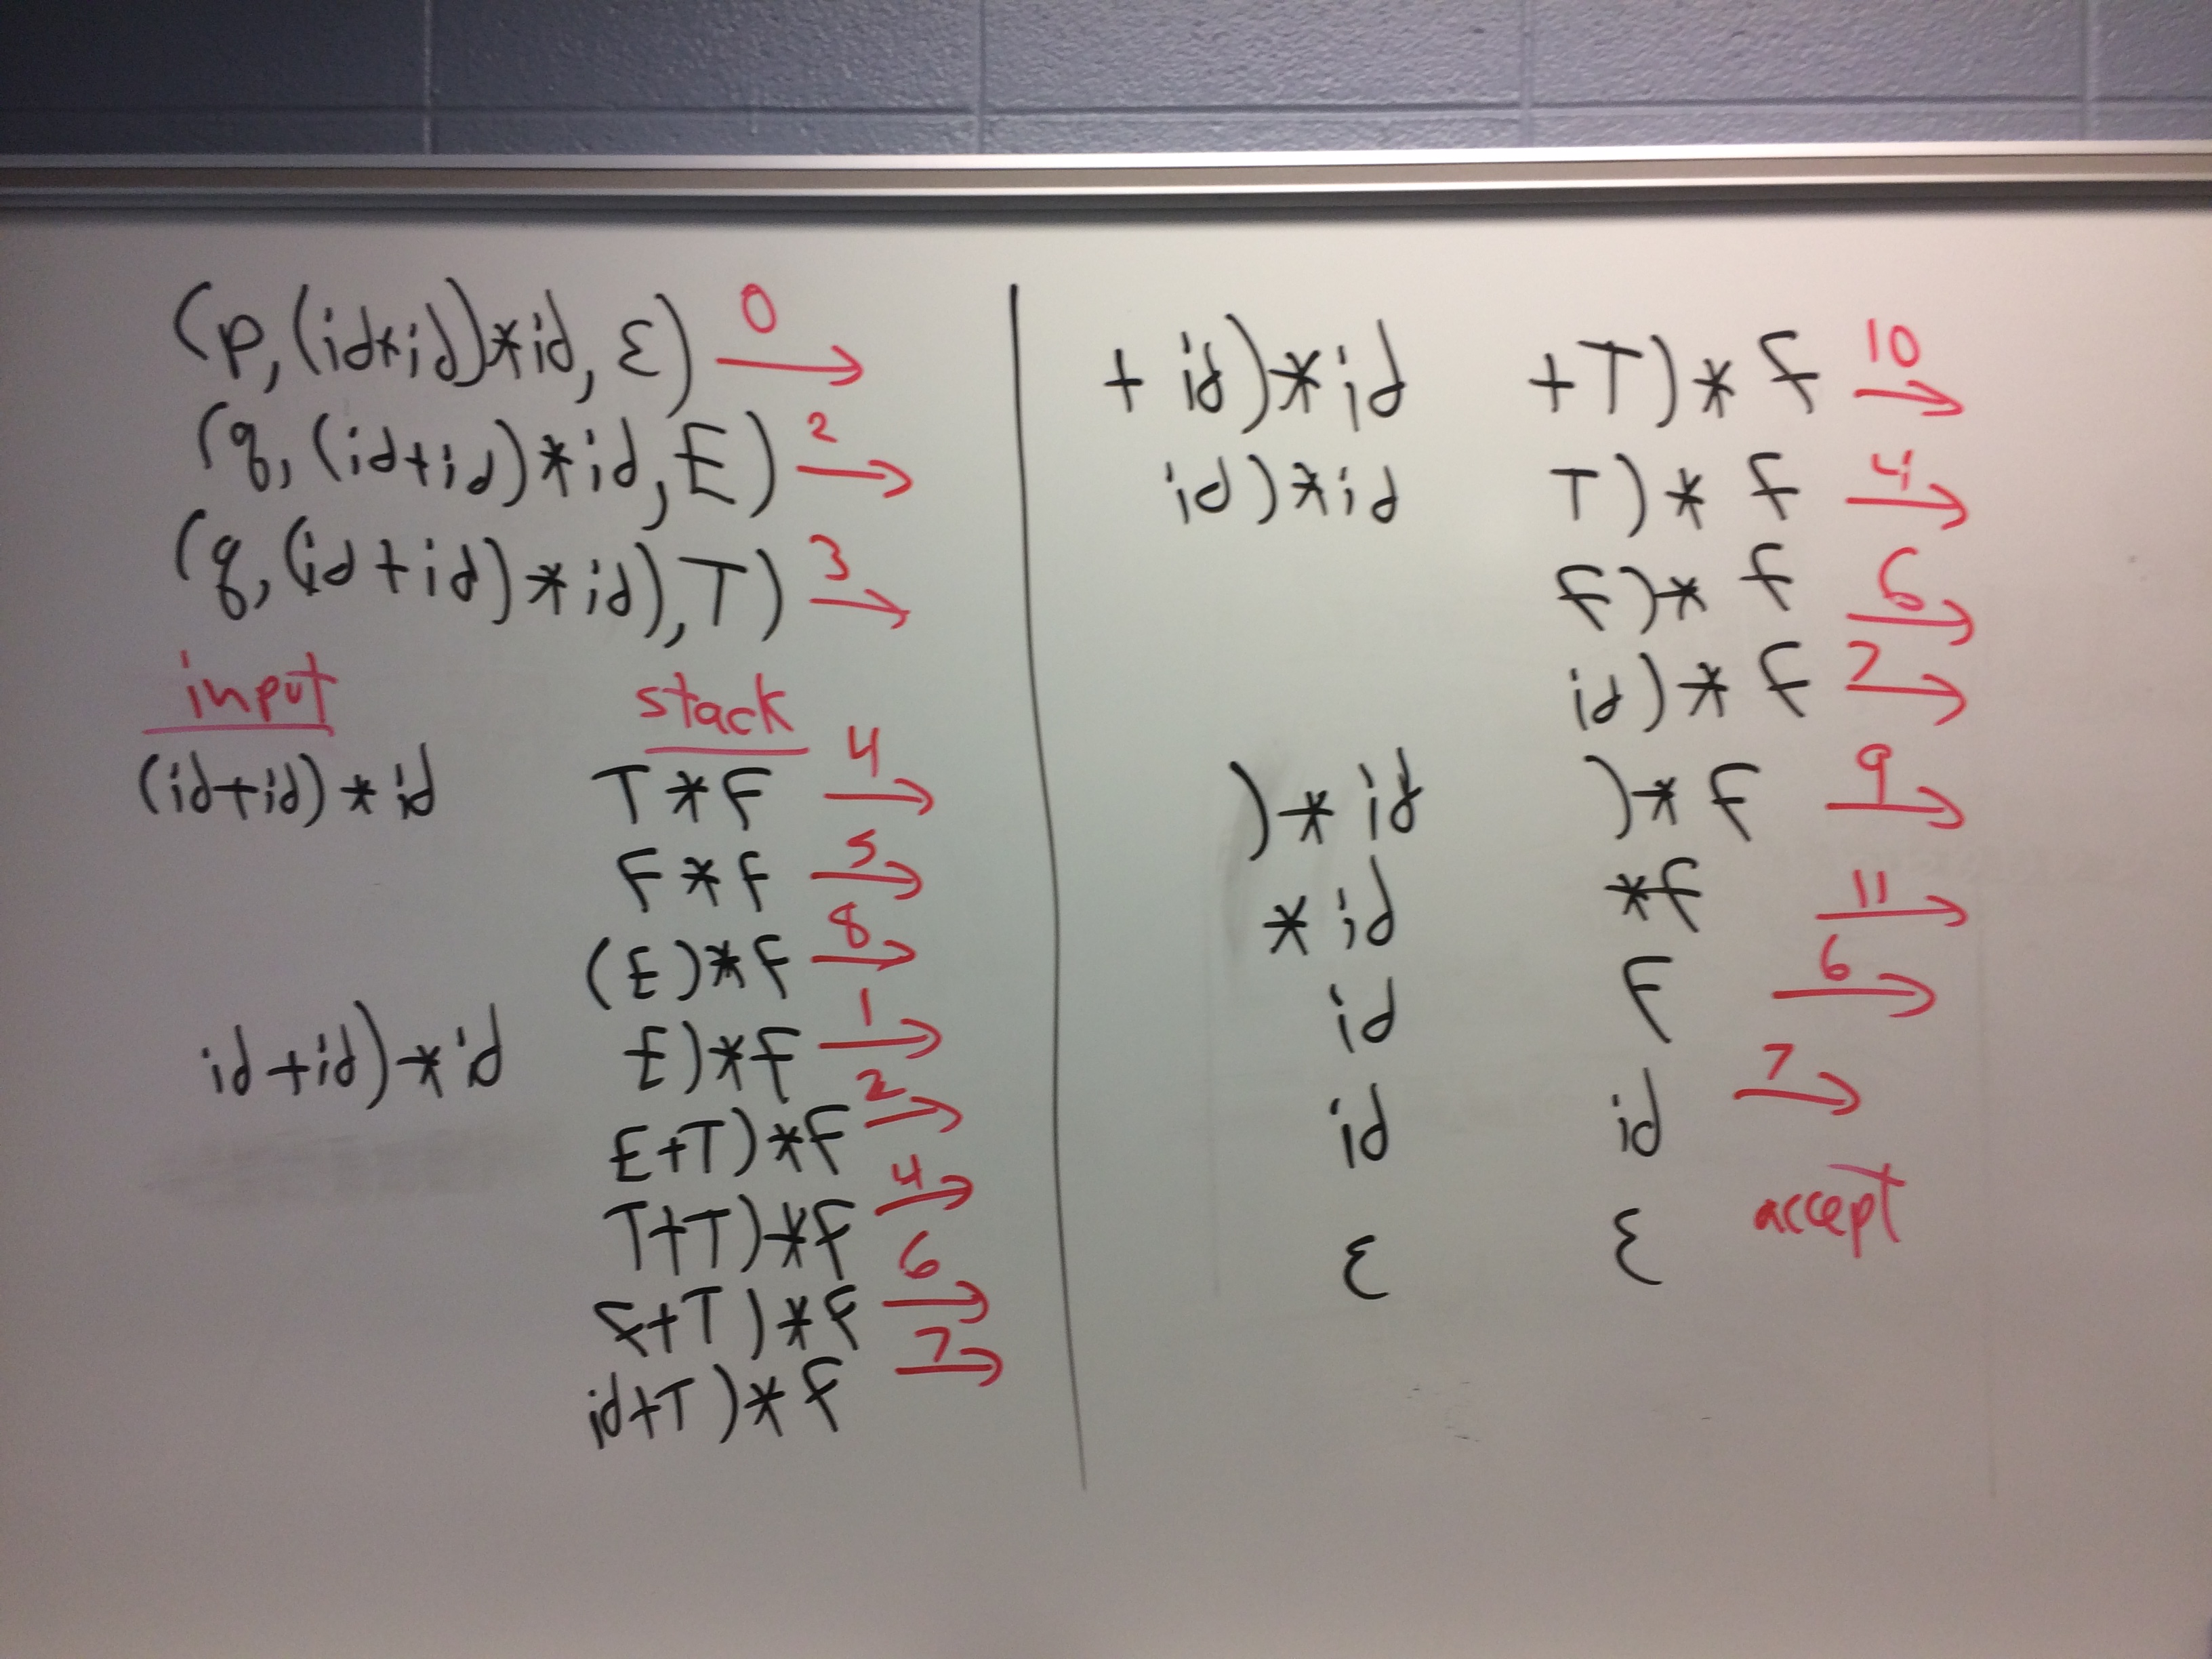 (p, (id+id)*id, ε) 0 →
(q, (id+id)*id, E) 2 →
(q, (id+id)*id), T) 3 →
input stack
(id+id)*id T*F 4 →
F*F 5 →
(E)*F 8 →
id+id)*id E)*F 1 →
E+T)*F 2 →
T+T)*F 4 →
F+T)*F 6 →
id+T)*F 7 →
+id)*id +T)*F 10 →
id)*id T)*F 4 →
F)*F 6 →
id)*F 7 →
)*id )*F 9 →
*id *F 11 →
id F 6 →
id id 7 →
ε ε accept